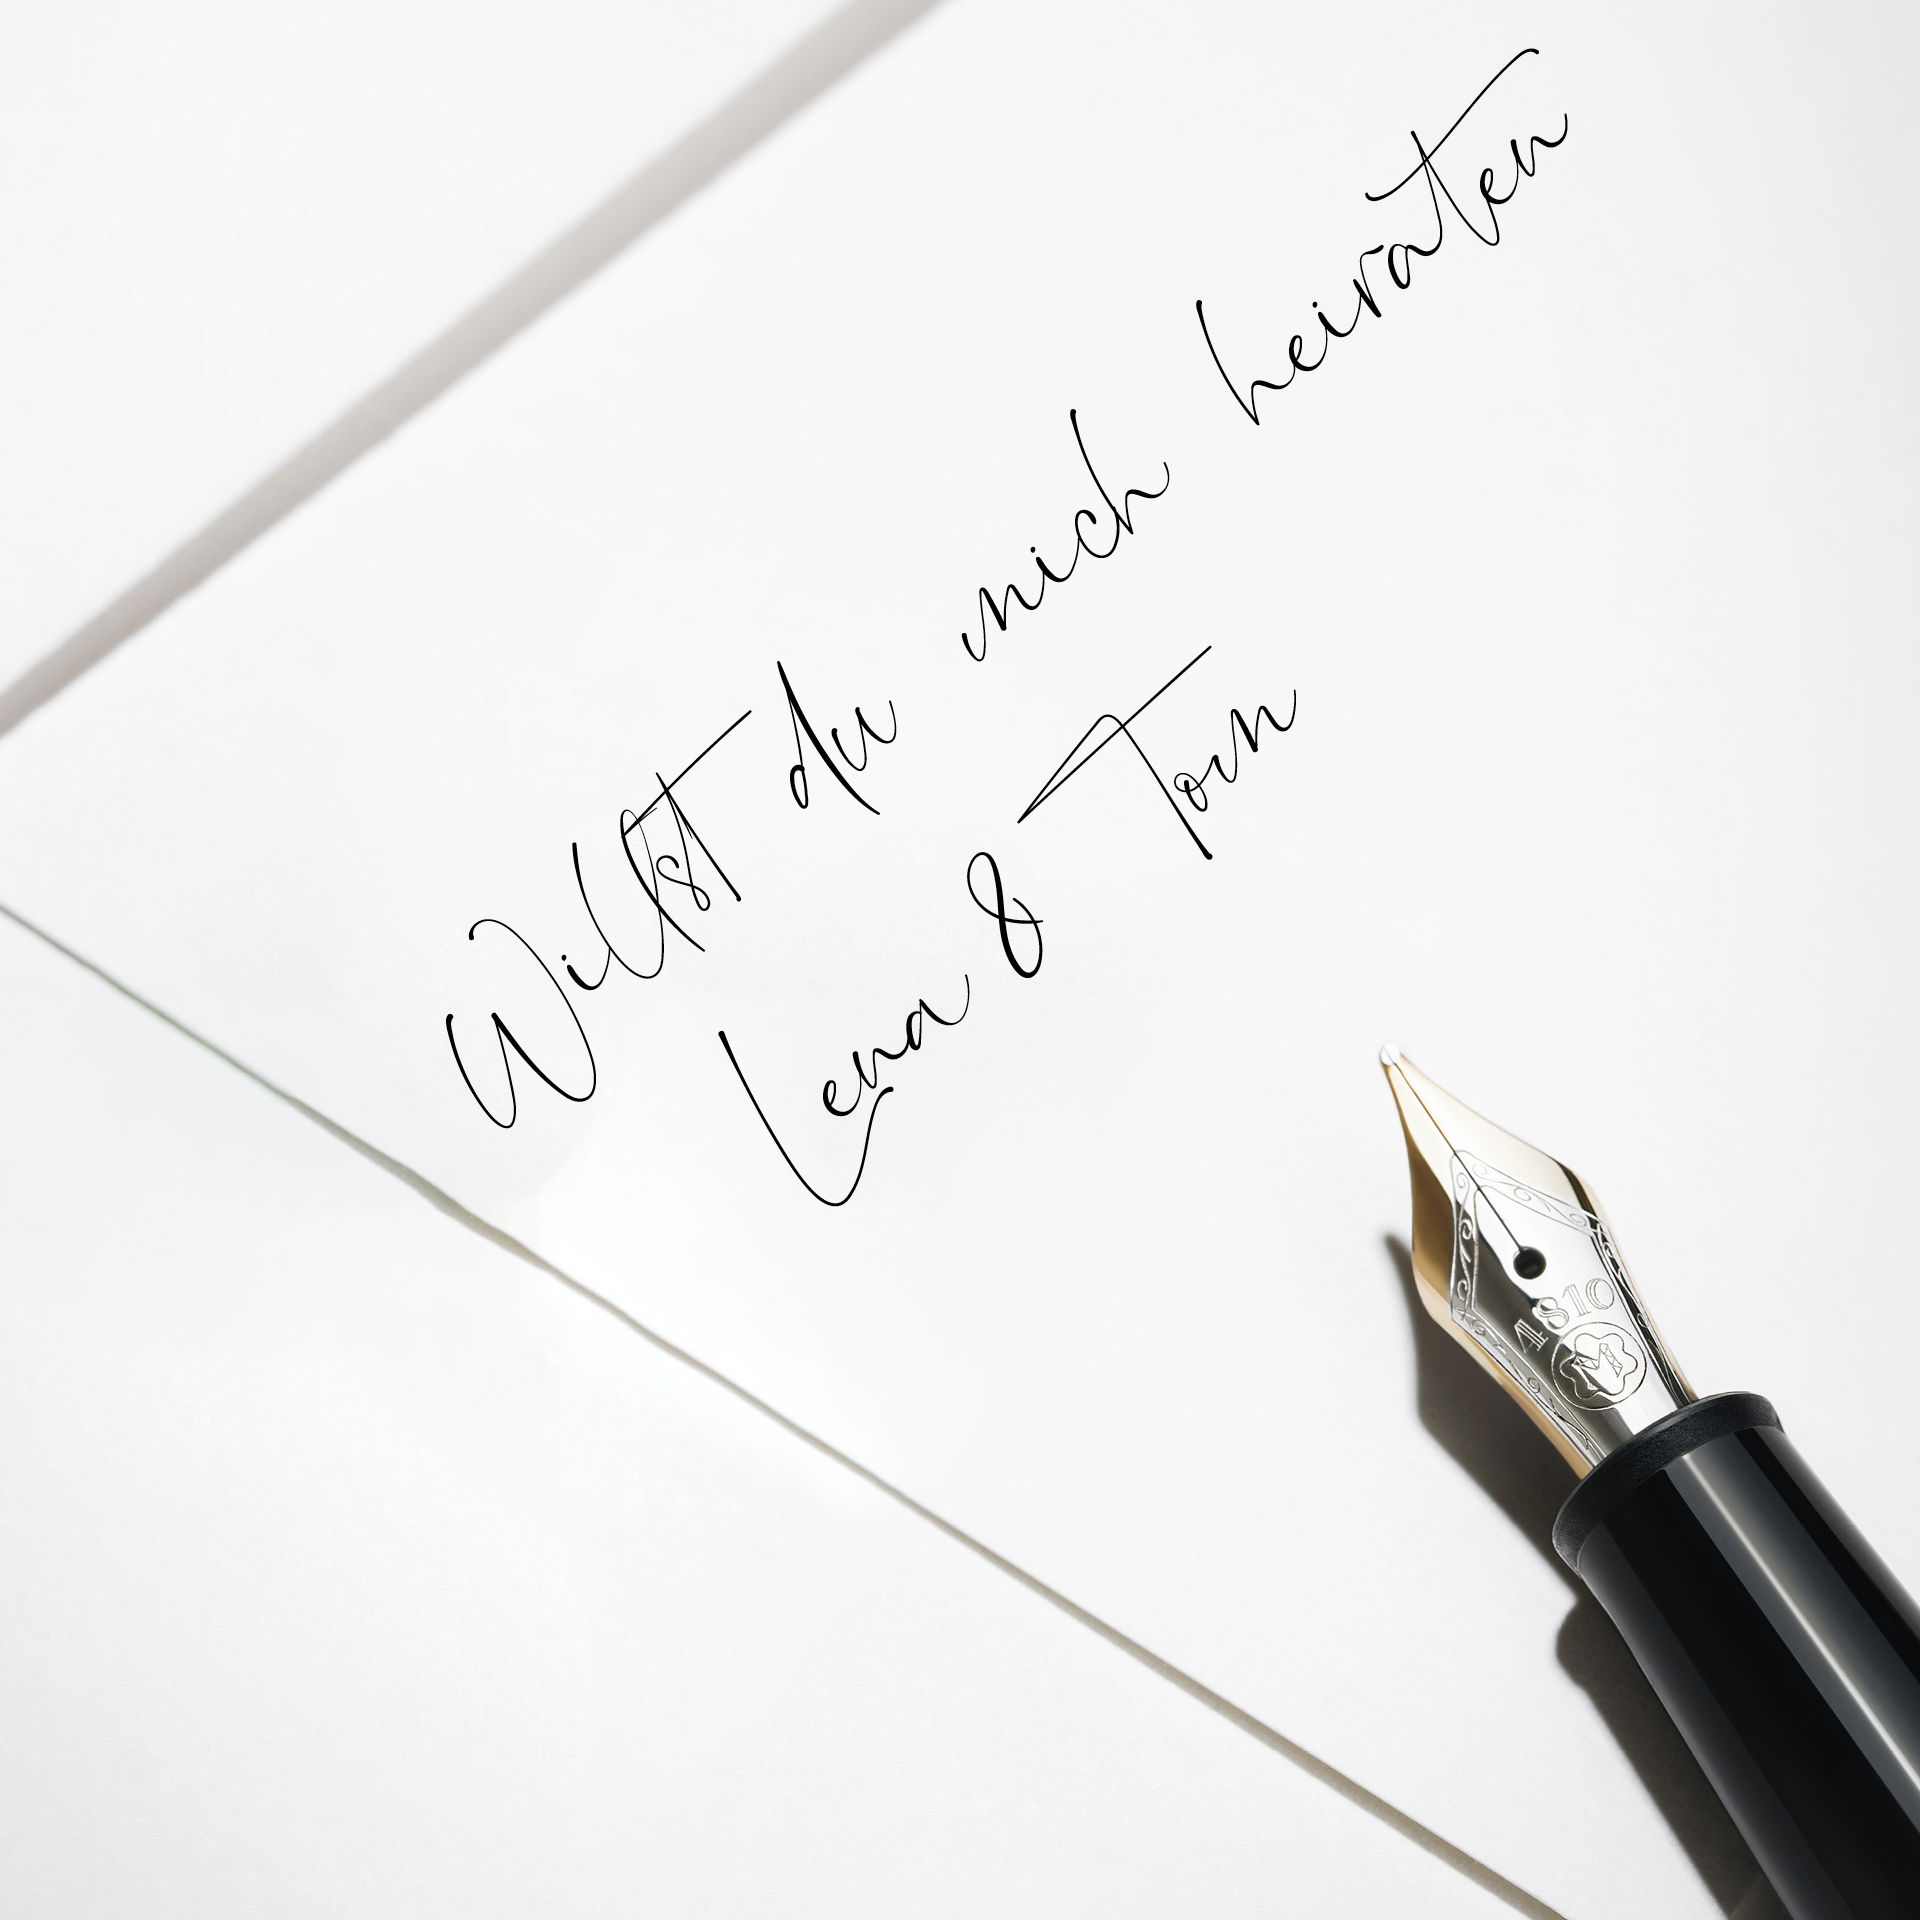 Willst du mich heiraten
Lena & Tom
4810
M